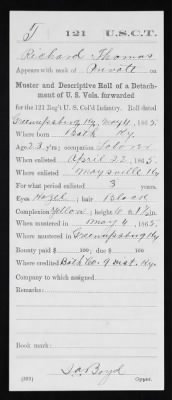 T | 121 | U.S.C.T.
Richard Thomas
Appears with rank of Private on
Muster and Descriptive Roll of a Detach-
ment of U. S. Vols. forwarded
for the 121 Reg't U. S. Col'd Infantry. Roll dated
Greenupsburg Ky, May 4, 1865.
Where born Bath Ky.
Age 23 y'rs; occupation
When enlisted April 22, 1865.
Where enlisted Maysville Ky
For what period enlisted 3 years.
Eyes Hazel; hair Black
Complexion Yellow; height 6 ft. 1½ in.
When mustered in May 4, 1865.
Where mustered in Greenupsburg Ky
Bounty paid $ 100; due $ 100
Where credited Bath Co. 9 Dist. Ky.
Company to which assigned
Remarks:
Book mark:
Boyd
(339) Copyist.